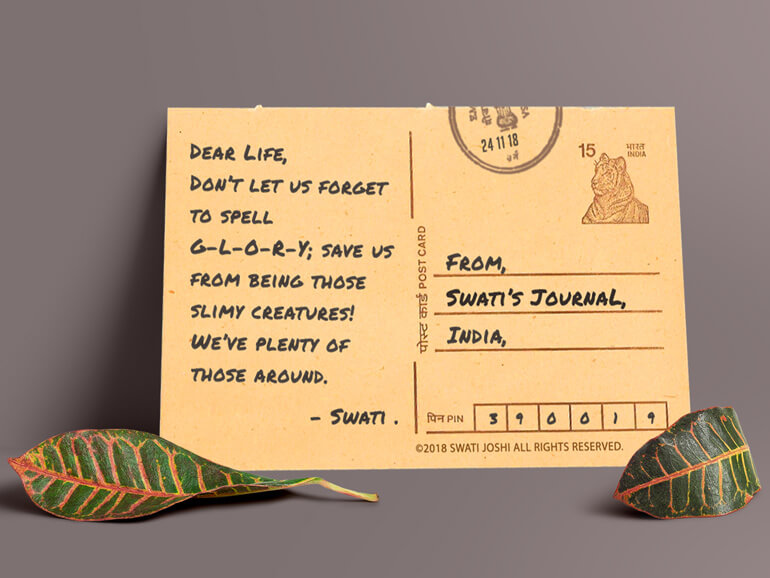 DEAR LIFE,
DON'T LET US FORGET
TO SPELL
G-L-O-R-Y; SAVE US
FROM BEING THOSE
SLIMY CREATURES!
WE'VE PLENTY OF
THOSE AROUND.
- SWATI .
पोस्ट कार्ड POST CARD
24 11 18
15 भारत
INDIA
FROM,
SWATI'S JOURNAL,
INDIA,
पिन PIN 3 9 0 0 1 9
©2018 SWATI JOSHI ALL RIGHTS RESERVED.